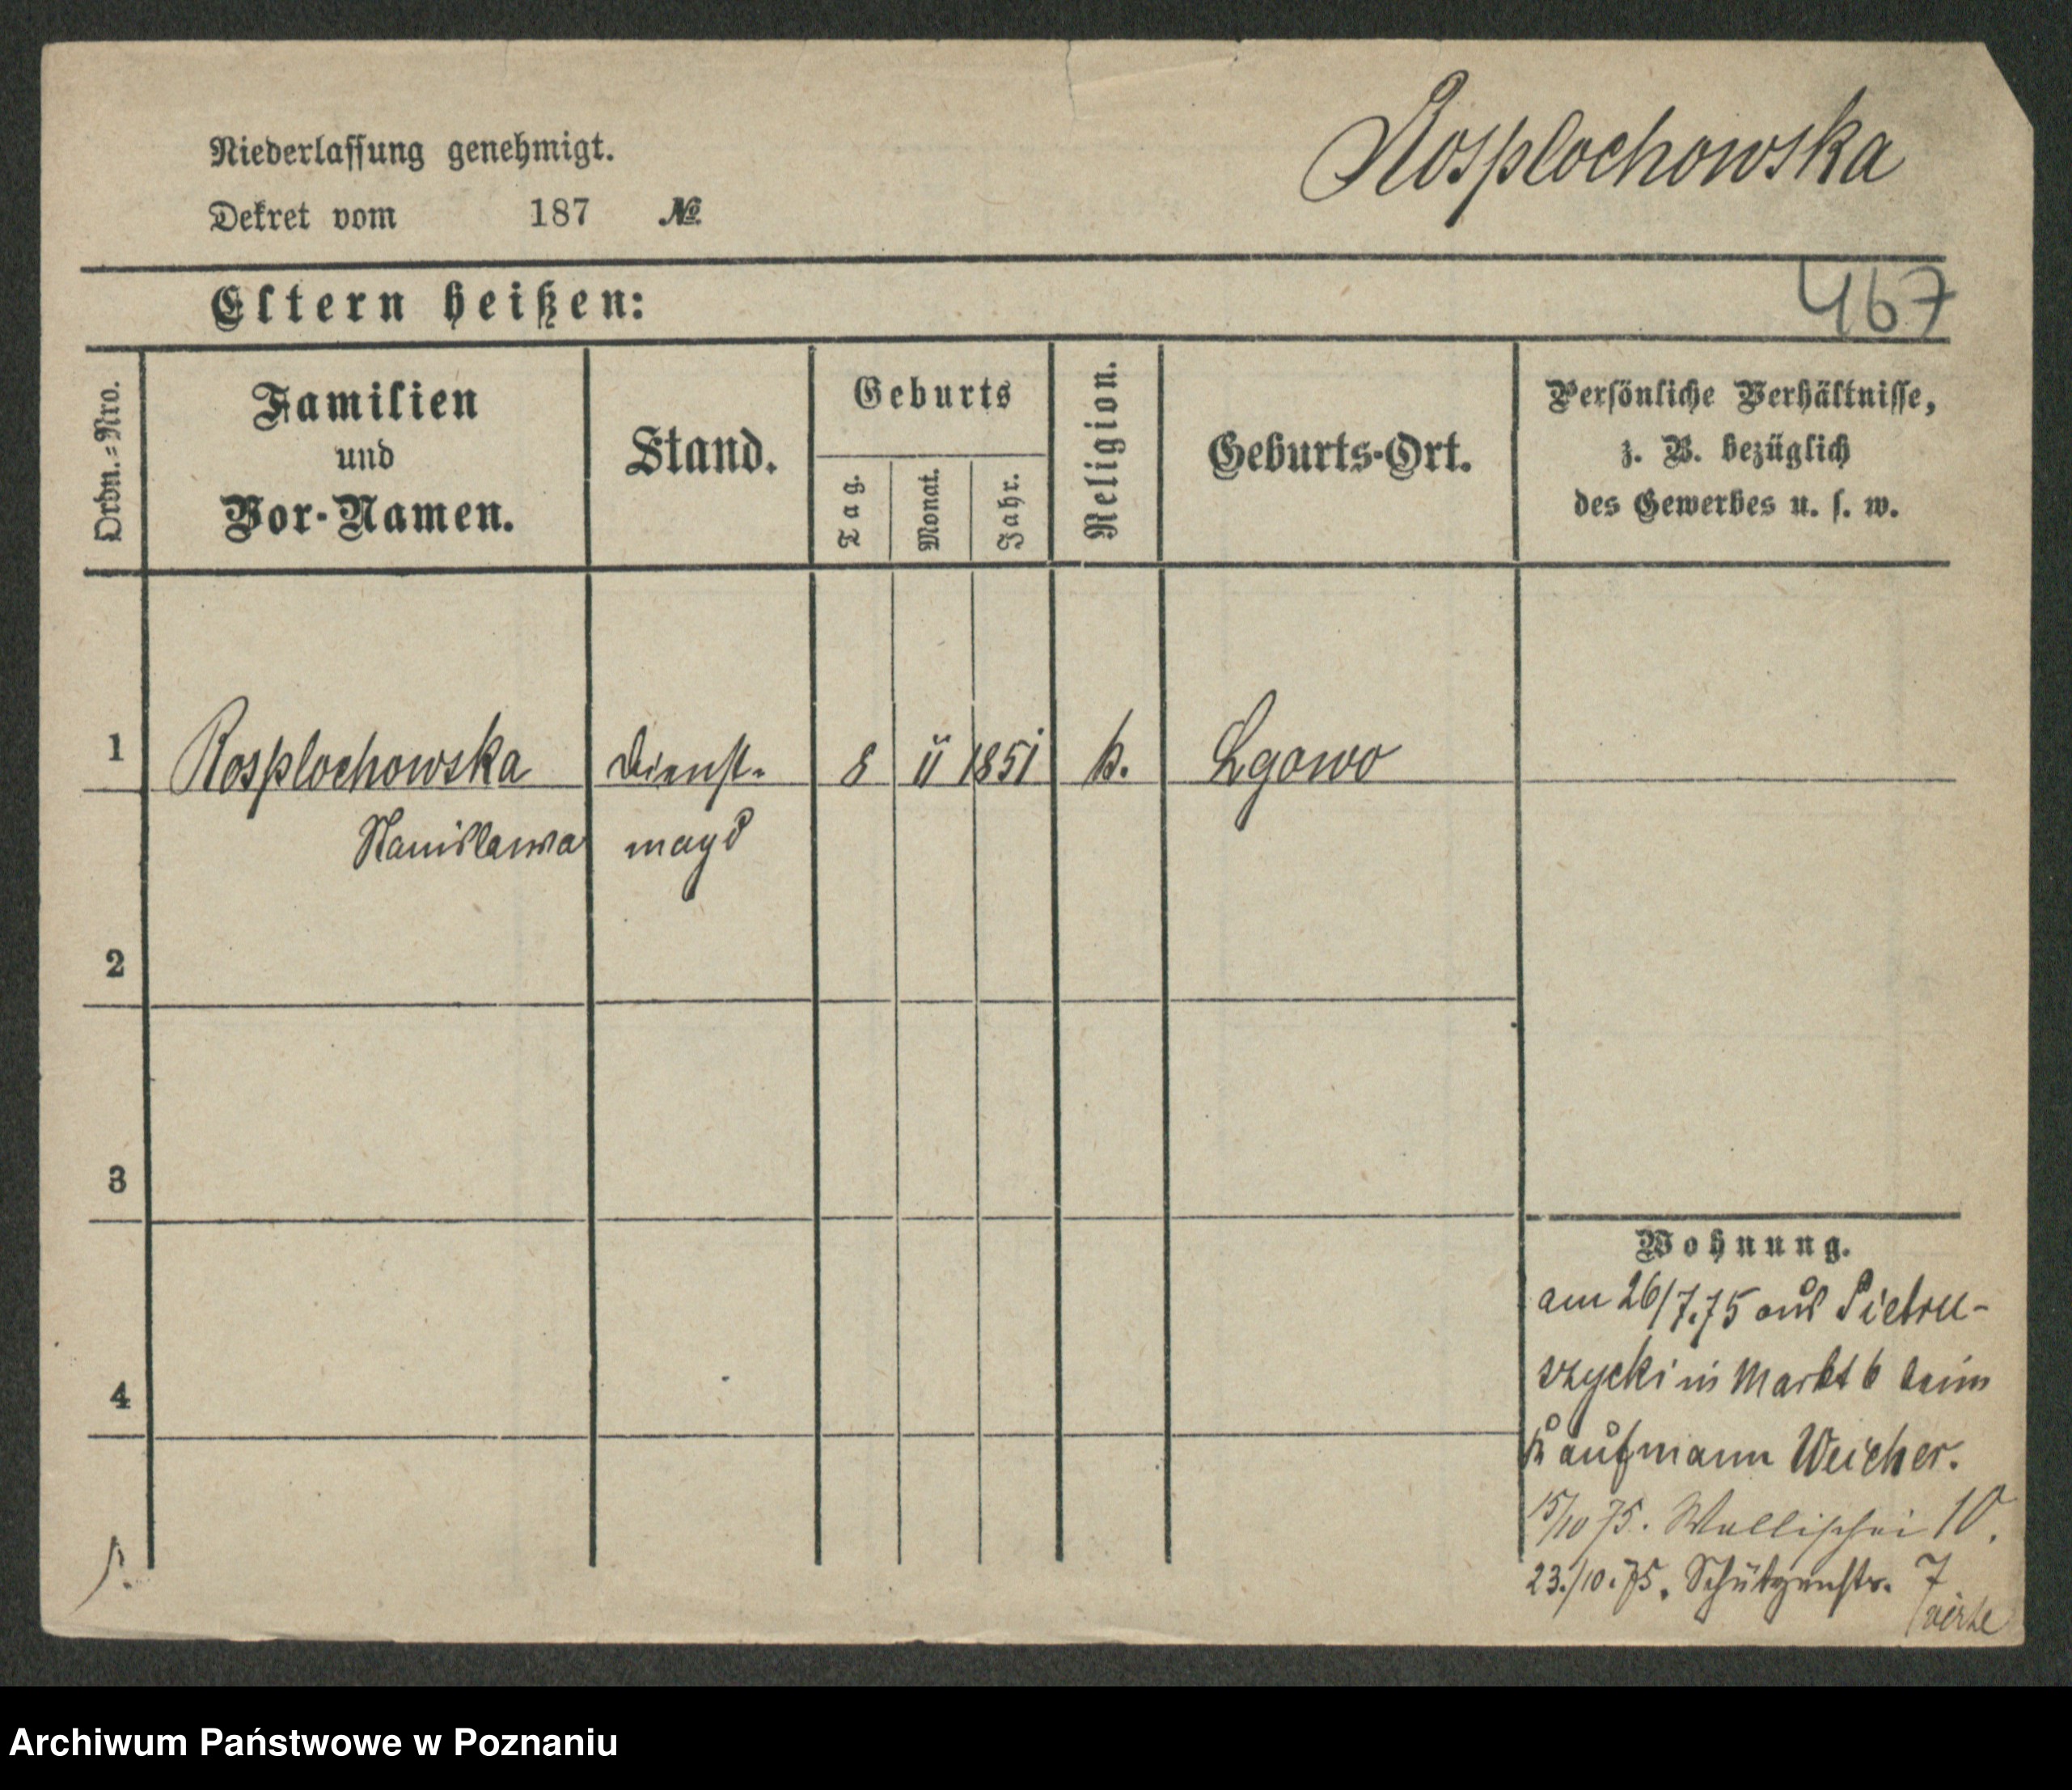 Niederlassung genehmigt.
Rosplochowska
Dekret vom 187 №
Eltern heißen:
467
Ordn.-Nro.
Familien
und
Vor-Namen.
Stand.
Geburts
Tag.
Monat.
Jahr.
Religion.
Geburts-Ort.
Persönliche Verhältnisse,
z. B. bezüglich
des Gewerbes u. s. w.
1 Rosplochowska Dienst- 8 11 1851 k. Lgowo
Stanislawa magd
2
3
Wohnung.
am 26/7.75 aus Pietru-
szycki in Markt 6 beim
4
Kaufmann Weicher.
15/10 75. Wallischei 10.
23./10.75. Schützenstr. 7
Archiwum Państwowe w Poznaniu